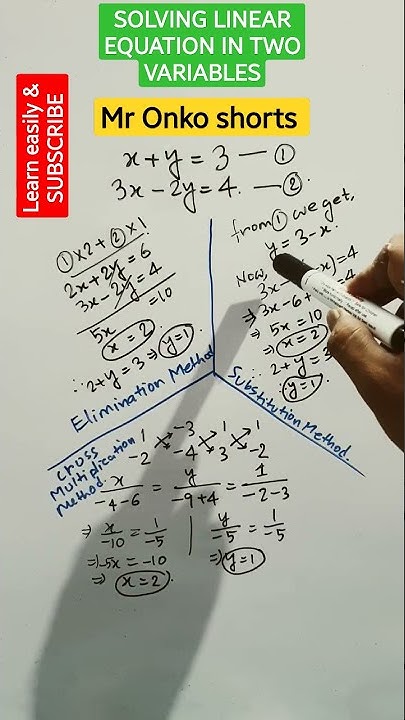 SOLVING LINEAR
EQUATION IN TWO
VARIABLES
Learn easily &
SUBSCRIBE
Mr Onko shorts
x + y = 3 — ①
3x - 2y = 4. — ②
①×2 + ②×1
2x + 2y = 6
3x - 2y = 4
5x = 10
x = 2
∴ 2 + y = 3 ⇒ y = 1
Elimination Method
from ① we get,
y = 3 - x.
Now,
3x - x) = 4
⇒ 3x - 6 + = 4
⇒ 5x = 10
⇒ x = 2
∴ 2 + y = 3
y = 1.
Substitution Method.
Cross
Multiplication
Method.
1 -3 1 1
-2 -4 3 -2
x/-4-6 = y/-9+4 = 1/-2-3
⇒ x/-10 = 1/-5 | y/-5 = 1/-5
⇒ -5x = -10 ⇒ y = 1
⇒ x = 2.